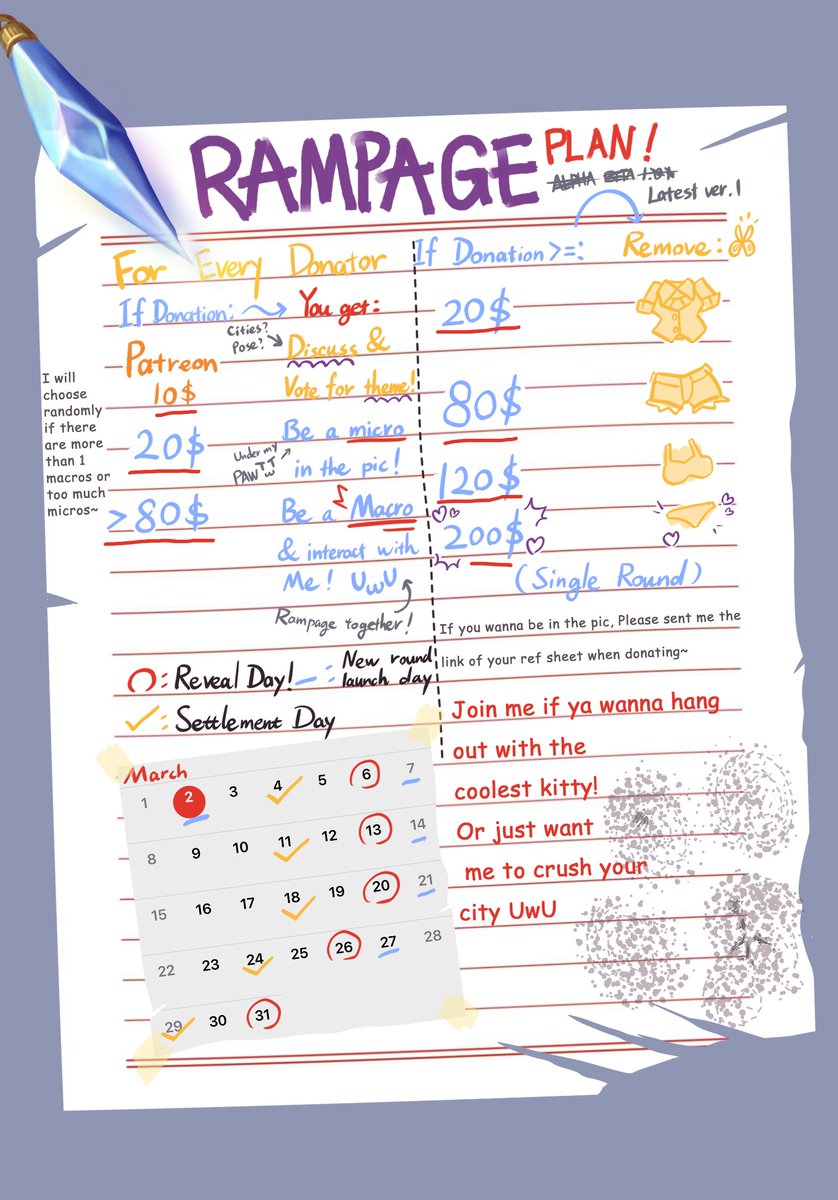 RAMPAGE PLAN!
ALPHA BETA 1.0.1
Latest ver.1
For Every Donator
If Donation:
You get:
Patreon
10$
Cities?
Pose?
Discuss &
Vote for theme!
20$
Under my
PAW TwT
Be a micro
in the pic!
>80$
Be a Macro
& interact with
Me! UwU
Rampage together!
I will
choose
randomly
if there
are more
than 1
macros or
too much
micros~
If Donation>=:
Remove:
20$
80$
120$
200$
(Single Round)
If you wanna be in the pic, Please sent me the
link of your ref sheet when donating~
: Reveal Day!
: New round
launch day
: Settlement Day
March
1 2 3 4 5 6 7
8 9 10 11 12 13 14
15 16 17 18 19 20 21
22 23 24 25 26 27 28
29 30 31
Join me if ya wanna hang
out with the
coolest kitty!
Or just want
me to crush your
city UwU